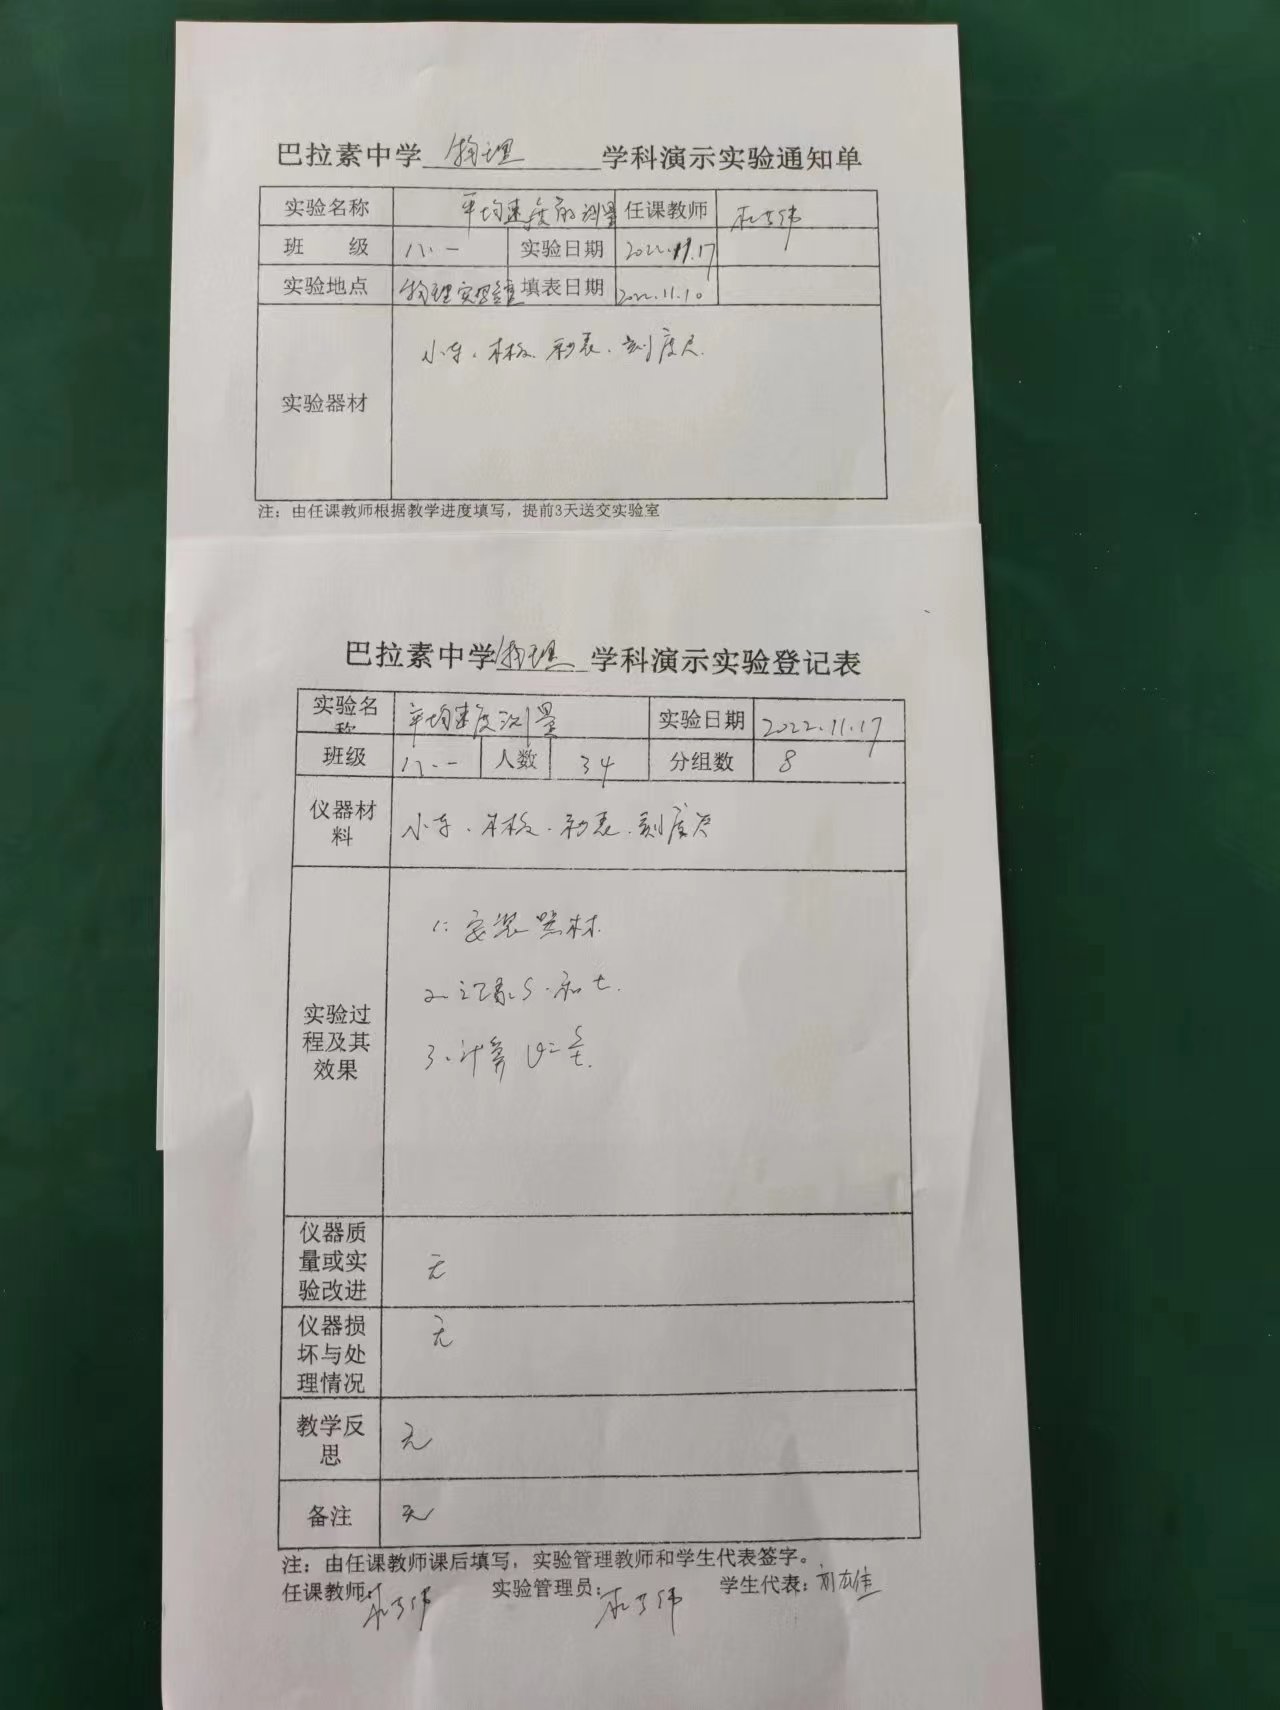 巴拉素中学 物理 学科演示实验通知单
实验名称 平均速度的测量 任课教师
班 级 八.一 实验日期 2022.11.17
实验地点 物理实验室 填表日期 2022.11.10
实验器材 小车、木板、秒表、刻度尺.
注：由任课教师根据教学进度填写，提前3天送交实验室
巴拉素中学 物理 学科演示实验登记表
实验名称 平均速度测量 实验日期 2022.11.17
班级 八.一 人数 34 分组数 8
仪器材料 小车、木板、秒表、刻度尺
实验过程及其效果
1. 安装器材.
2. 记录 S 和 t.
3. 计算 v=s/t.
仪器质量或实验改进 无
仪器损坏与处理情况 无
教学反思 无
备注 无
注：由任课教师课后填写，实验管理教师和学生代表签字。
任课教师： 实验管理员： 学生代表：